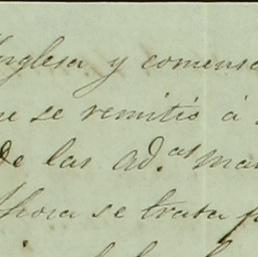 Inglesa y comens
se remitió á
de las ad.as mar
Ahora se trata p